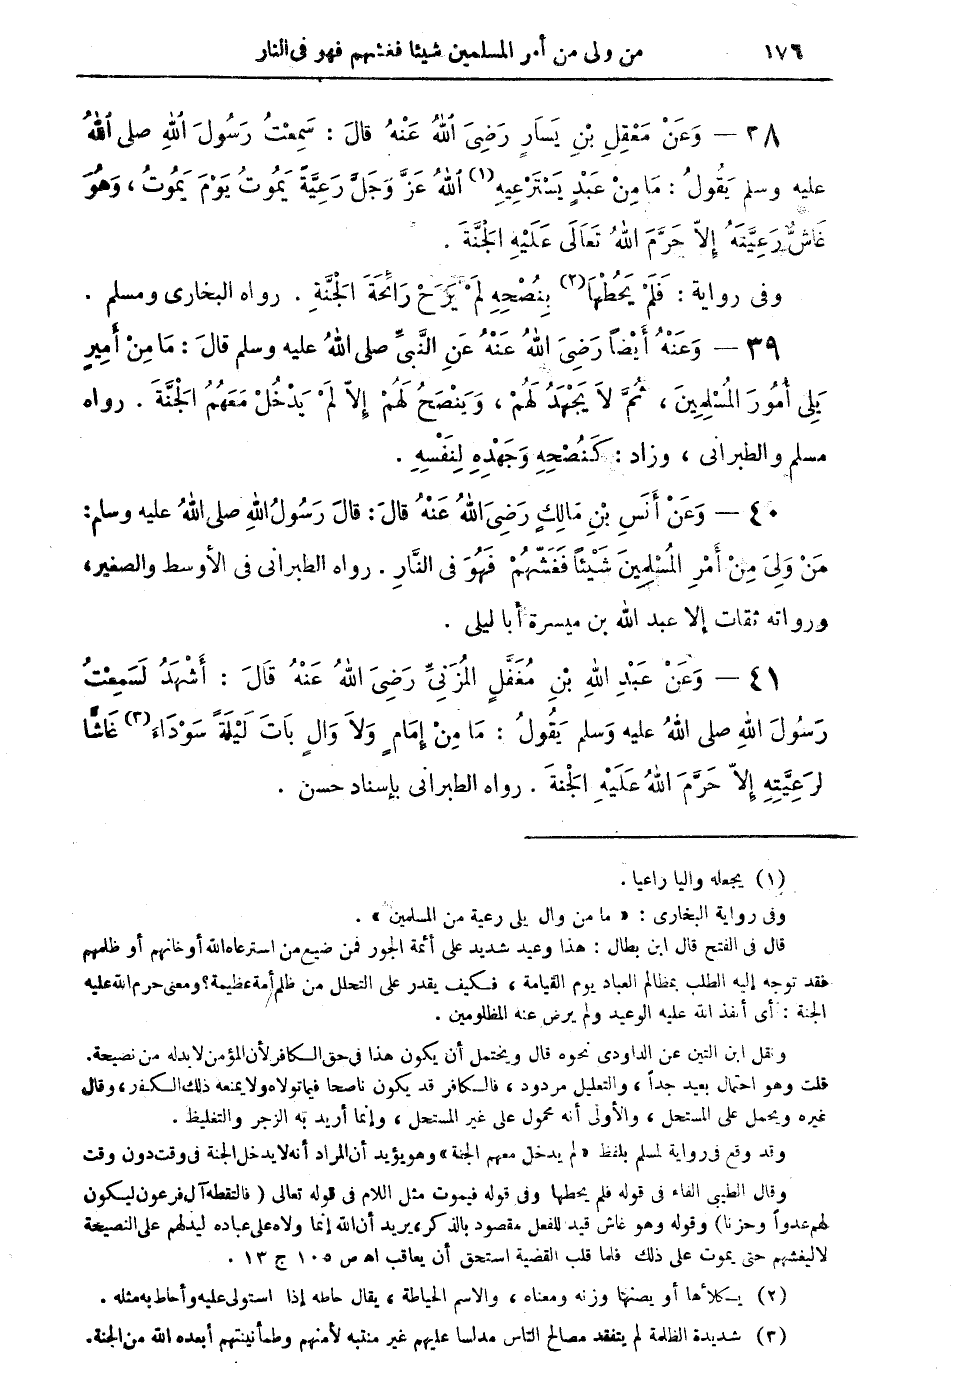 ١٧٦ من ولى من أمر المسلمين شيئا فغشهم فهو فى النار
٣٨ — وَعَنْ مَعْقِلِ بْنِ يَسَارٍ رَضِىَ اللهُ عَنْهُ قالَ : سَمِعْتُ رَسُولَ اللهِ صلى اللهُ
عليه وسلم يَقُولُ : مَا مِنْ عَبْدٍ يَسْتَرْعِيهِ(١) اللهُ عَزَّ وَجَلَّ رَعِيَّةً يَمُوتُ يَوْمَ يَمُوتُ ، وَهُوَ
غَاشٌّ رَعِيَّتَهُ إِلاَّ حَرَّمَ اللهُ تَعَالَى عَلَيْهِ الْجَنَّةَ .
وفى رواية : فَلَمْ يَحُطْهَا(٢) بِنُصْحِهِ لَمْ يَرَحْ رَائِحَةَ الْجَنَّةِ . رواه البخارى ومسلم .
٣٩ — وَعَنْهُ أَيْضاً رَضِىَ اللهُ عَنْهُ عَنِ النَّبِىِّ صلى اللهُ عليه وسلم قالَ : مَا مِنْ أَمِيرٍ
يَلِى أُمُورَ الْمُسْلِمِينَ ، ثُمَّ لاَ يَجْهَدُ لَهُمْ ، وَيَنْصَحُ لَهُمْ إِلاَّ لَمْ يَدْخُلْ مَعَهُمُ الْجَنَّةَ . رواه
مسلم والطبرانى ، وزاد : كَنُصْحِهِ وَجَهْدِهِ لِنَفْسِهِ .
٤٠ — وَعَنْ أَنَسِ بْنِ مَالِكٍ رَضِىَ اللهُ عَنْهُ قالَ : قالَ رَسُولُ اللهِ صلى اللهُ عليه وسلم :
مَنْ وَلِىَ مِنْ أَمْرِ الْمُسْلِمِينَ شَيْئاً فَغَشَّهُمْ فَهُوَ فى النَّارِ . رواه الطبرانى فى الأوسط والصغير ،
ورواته ثقات إلا عبد الله بن ميسرة أبا ليلى .
٤١ — وَعَنْ عَبْدِ اللهِ بْنِ مُغَفَّلٍ الْمُزَنِىِّ رَضِىَ اللهُ عَنْهُ قَالَ : أَشْهَدُ لَسَمِعْتُ
رَسُولَ اللهِ صلى اللهُ عليه وَسلم يَقُولُ : مَا مِنْ إِمَامٍ وَلاَ وَالٍ بَاتَ لَيْلَةً سَوْدَاءَ(٣) غَاشًّا
لِرَعِيَّتِهِ إِلاَّ حَرَّمَ اللهُ عَلَيْهِ الْجنةَ . رواه الطبرانى بإسناد حسن .
(١) يجعله واليا راعيا .
وفى رواية البخارى : « ما من وال يلى رعية من المسلمين » .
قال فى الفتح قال ابن بطال : هذا وعيد شديد على أئمة الجور فمن ضيع من استرعاه الله أو خانهم أو ظلمهم
فقد توجه إليه الطلب بمظالم العباد يوم القيامة ، فكيف يقدر على التحلل من ظلم أمة عظيمة ؟ ومعنى حرم الله عليه
الجنة : أى أنفذ الله عليه الوعيد ولم يرض عنه المظلومين .
ونقل ابن التين عن الداودى نحوه قال ويحتمل أن يكون هذا فى حق الكافر لأن المؤمن لابد له من نصيحة .
قلت وهو احتمال بعيد جداً ، والتعليل مردود ، فالكافر قد يكون ناصحا فيما تولاه ولا يمنعه ذلك الكفر ، وقال
غيره ويحمل على المستحل ، والأولى أنه محمول على غير المستحل ، وإنما أريد به الزجر والتغليظ .
وقد وقع فى رواية لمسلم بلفظ « لم يدخل معهم الجنة » وهو يؤيد أن المراد أنه لا يدخل الجنة فى وقت دون وقت
وقال الطيبى الفاء فى قوله فلم يحطها وفى قوله فيموت مثل اللام فى قوله تعالى ( فالتقطه آل فرعون ليكون
لهم عدواً وحزنا ) وقوله وهو غاش قيد للفعل مقصود بالذكر ، يريد أن الله إنما ولاه على عباده ليدلهم على النصيحة
لا ليغشهم حتى يموت على ذلك فلما قلب القضية استحق أن يعاقب اه ص ١٠٥ ج ١٣ .
(٢) يكلأها أو يصنها وزنه ومعناه ، والاسم الحياطة ، يقال حاطه إذا استولى عليه وأحاط به مثله .
(٣) شديدة الظلمة لم يتفقد مصالح الناس مدلسا عليهم غير منتبه لأمنهم وطمأنينتهم أبعده الله من الجنة .